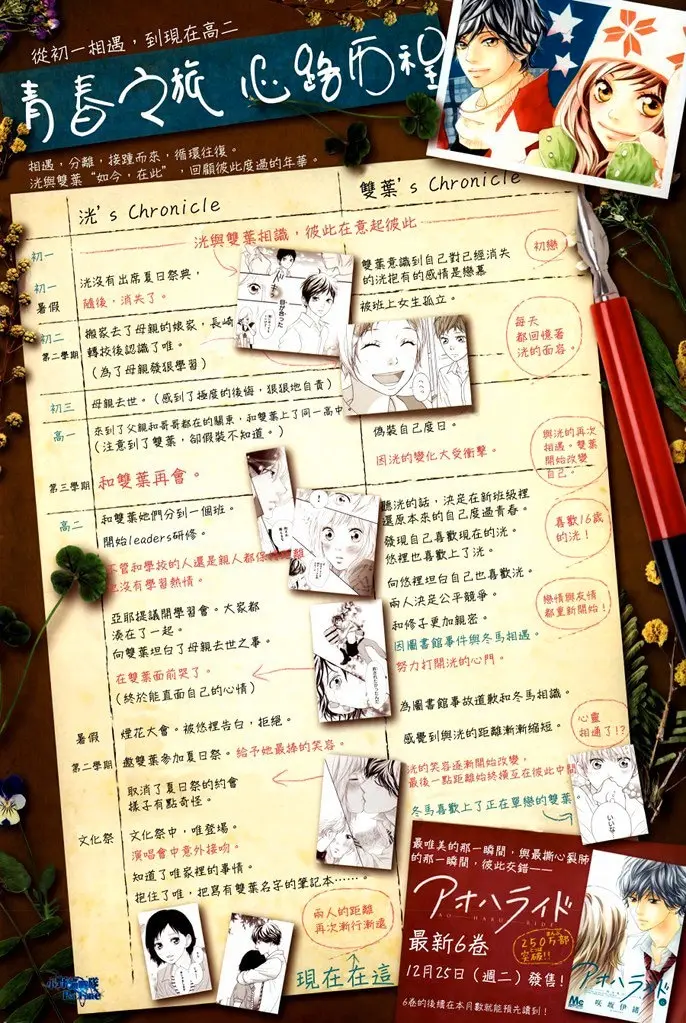 從初一相遇，到現在高二
青春之旅 心路历程
相遇，分離，接踵而來，循環往復。
洸與雙葉“如今，在此”，回顧彼此度過的年華。
洸's Chronicle
雙葉's Chronicle
初一
洸與雙葉相識，彼此在意起彼此
初一
暑假
洸沒有出席夏日祭典，
隨後，消失了。
雙葉意識到自己對已經消失
的洸抱有的感情是戀慕
初戀
被班上女生孤立。
初二
第二學期
搬家去了母親的娘家，長崎
轉校後認識了唯。
(為了母親發狠學習)
每天
都回憶著
洸的面容。
初三
母親去世。(感到了極度的後悔，狠狠地自責)
高一
來到了父親和哥哥都在的關東，和雙葉上了同一高中
(注意到了雙葉，卻假裝不知道。)
偽裝自己度日。
因洸的變化大受衝擊。
與洸的再次
相遇。雙葉
開始改變
自己。
第三學期
和雙葉再會。
高二
和雙葉她們分到一個班。
開始leaders研修。
聽洸的話，決定在新班級裡
還原本來的自己度過青春。
發現自己喜歡現在的洸。
悠裡也喜歡上了洸。
喜歡16歲
的洸！
不管和學校的人還是親人都保持距離
也沒有學習熱情。
向悠裡坦白自己也喜歡洸。
兩人決定公平競爭。
和修子更加親密。
戀情與友情
都重新開始！
亞耶提議開學習會。大家都
湊在了一起。
向雙葉坦白了母親去世之事。
因圖書館事件與冬馬相遇。
努力打開洸的心門。
在雙葉面前哭了。
(終於能直面自己的心情)
暑假
煙花大會。被悠裡告白，拒絕。
為圖書館事故道歉和冬馬相識。
感覺到與洸的距離漸漸縮短。
心靈
相通了!?
第二學期
邀雙葉參加夏日祭。給予她最棒的笑容。
取消了夏日祭的約會
樣子有點奇怪。
洸的笑容逐漸開始改變，
最後一點距離始終橫亙在彼此中間
冬馬喜歡上了正在單戀的雙葉。
いいな
文化祭
文化祭中，唯登場。
演唱會中意外接吻。
知道了唯家裡的事情。
抱住了唯，把寫有雙葉名字的筆記本……。
兩人的距離
再次漸行漸遠
現在在這
最唯美的那一瞬間，與最撕心裂肺
的那一瞬間，彼此交錯——
アオハライド
AO HARU RIDE
最新6卷
250万部
突破!!
12月25日（週二）發售！
6卷的後續在本月數就能預先讀到！
アオハライド
咲坂伊緒